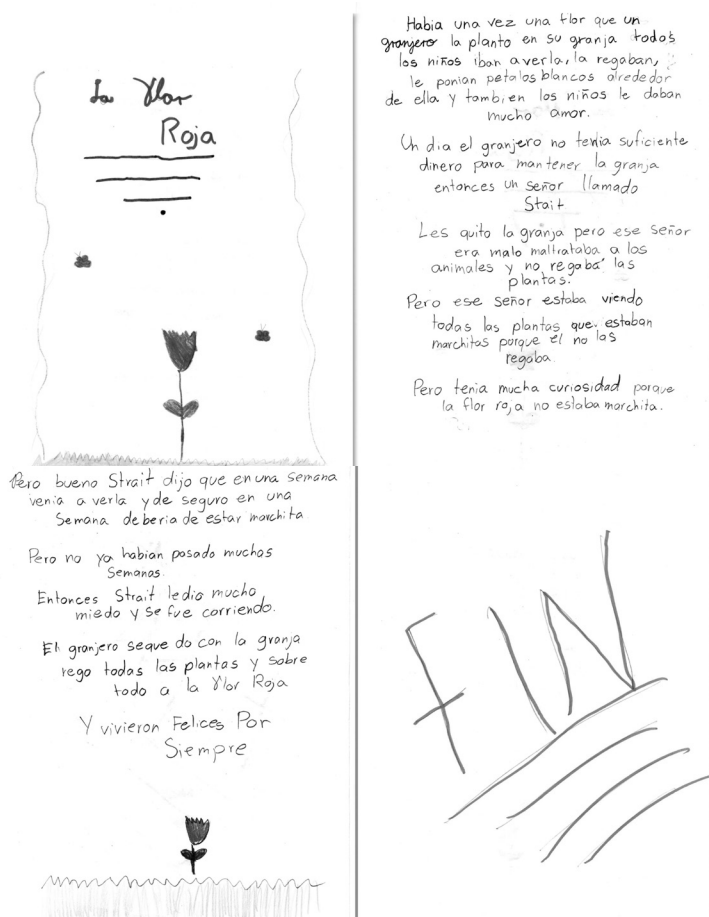 La Flor
Roja
Habia una vez una flor que un
granjero la planto en su granja todos
los niños iban averla, la regaban,
le ponian petalos blancos alrededor
de ella y tambien los niños le daban
mucho amor.
Un dia el granjero no tenia suficiente
dinero para mantener la granja
entonces un señor llamado
Strait
Les quito la granja pero ese señor
era malo maltrataba a los
animales y no regaba las
plantas.
Pero ese señor estaba viendo
todas las plantas que estaban
marchitas porque el no las
regaba.
Pero tenia mucha curiosidad porque
la flor roja no estaba marchita.
Pero bueno Strait dijo que en una semana
venia a verla y de seguro en una
Semana deberia de estar marchita
Pero no ya habian pasado muchas
Semanas.
Entonces Strait le dio mucho
miedo y se fue corriendo.
El granjero se que do con la granja
rego todas las plantas y sobre
todo a la Flor Roja
Y vivieron Felices Por
Siempre
FIN